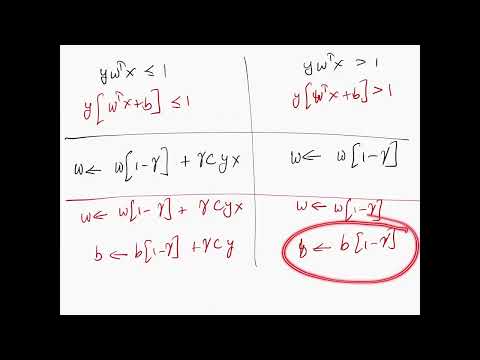 ywᵀx ≤ 1
y[wᵀx+b] ≤ 1
ywᵀx > 1
y[wᵀx+b] > 1
w ← w[1-γ] + γCyx
w ← w[1-γ]
w ← w[1-γ] + γCyx
b ← b[1-γ] + γCy
w ← w[1-γ]
b ← b[1-γ]